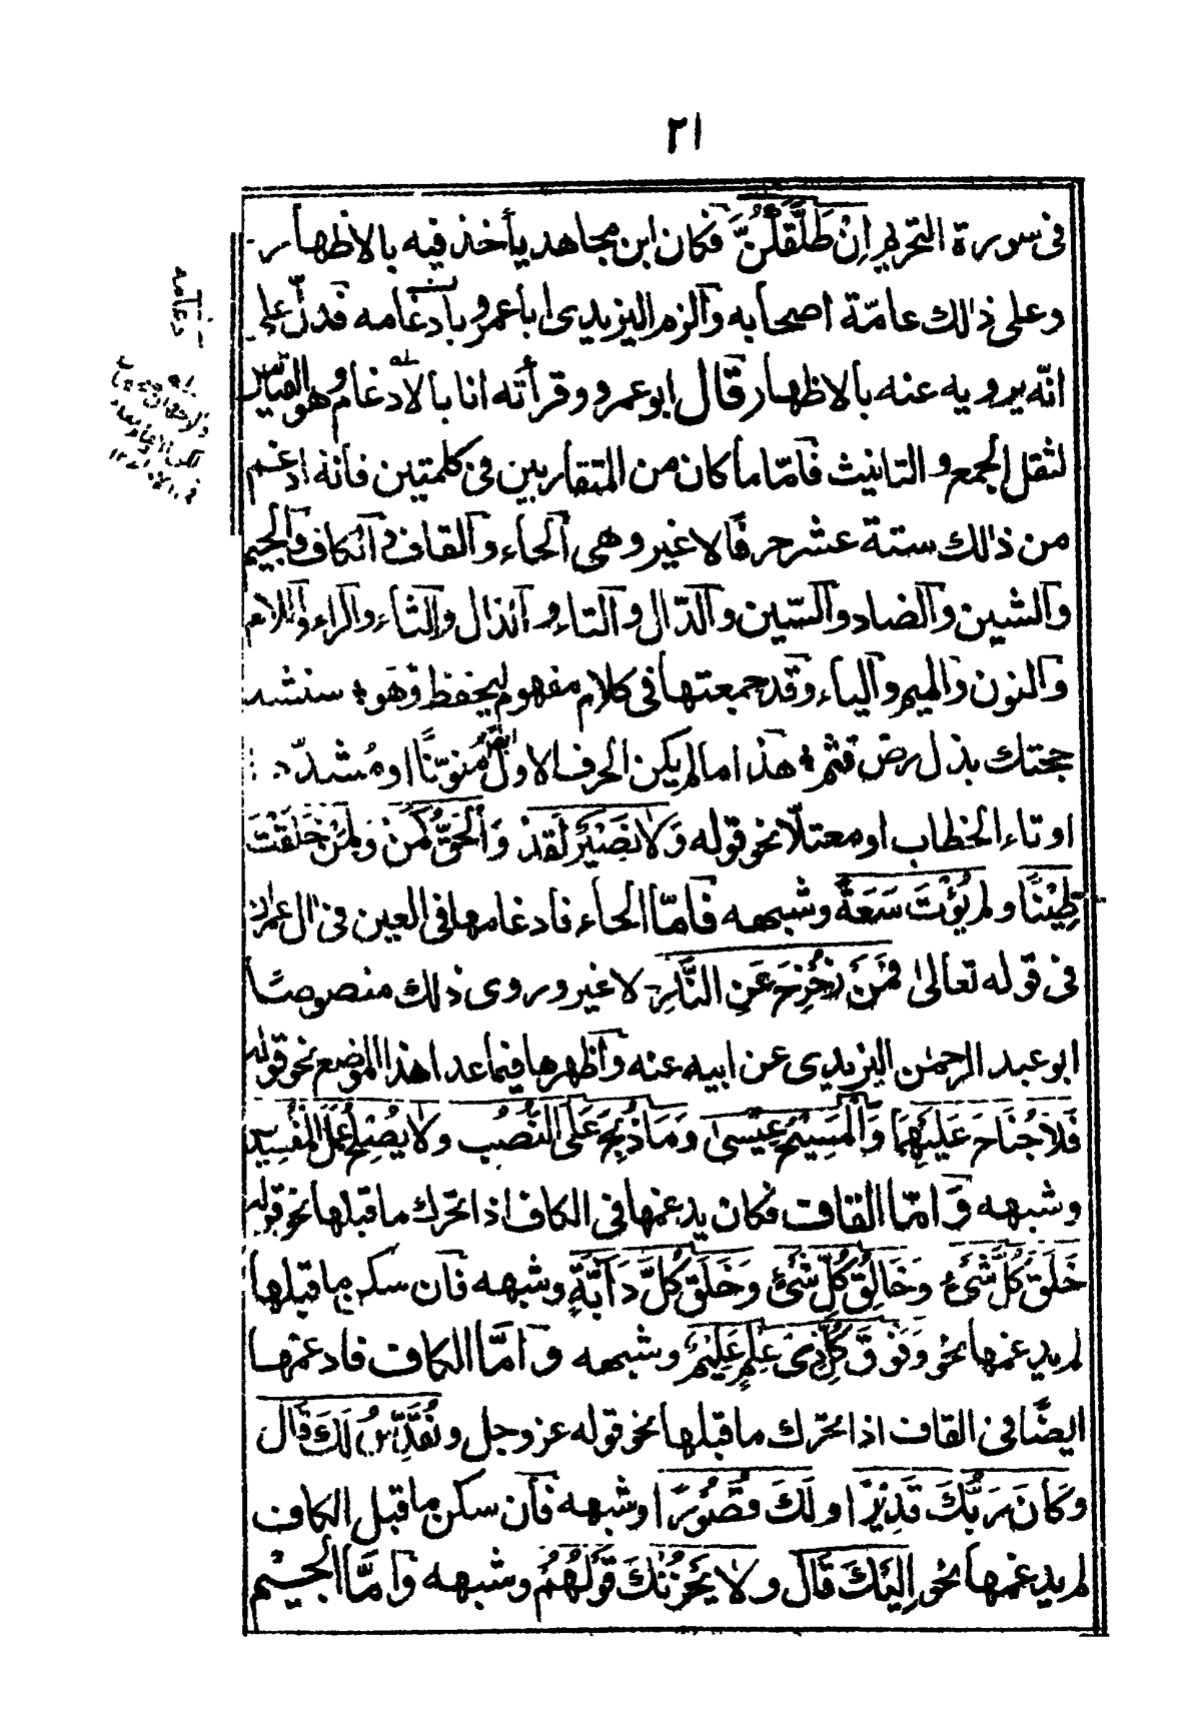 ٢١
فى سورة التحريم اِنْ طَلَّقَكُنَّ فكان ابن مجاهد يأخذ فيه بالاظهار
وعلى ذلك عامّة اصحابه وألزم اليزيدى ابا عمرو بادغامه فدلّ على
انّه يرويه عنه بالاظهار قال ابو عمرو وقرأته انا بالادغام وهو القياس
لثقل الجمع و التانيث فامّا ما كان من المتقاربين فى كلمتين فانه ادغم
من ذلك ستة عشر حرفًا لا غير وهى الحاء والقاف و الكاف والجيم
والشين والضاد والسّين والدّال والتاء و الذال والثاء والراء واللام
والنون والميم والباء وقد جمعتها فى كلام مفهوم ليحفظ وهو سنشد
حجتك بذل رض قثم هذا ما لم يكن الحرف الاول مُنوّنًا او مُشدّد
او تاء الخطاب او معتلّا نحو قوله وَلَا نَصِيْرٍ لَقَدْ وَالْحَقُّ كَمَنْ وَلِمَنْ خَلَقْتَ
طِيْنًا و لم يُؤْتَ سَعَةً وشبهه فامّا الحاء فادغامها فى العين فى ال عمران
فى قوله تعالى فَمَنْ زُحْزِحَ عَنِ النَّارِ لا غير و روى ذلك منصوصًا
ابو عبد الرحمٰن اليزيدى عن ابيه عنه واظهرها فيما عدا هذا الموضع نحو قوله
فَلَا جُنَاحَ عَلَيْهِمَا وَالْمَسِيْحُ عِيْسىٰ وَمَا ذُبِحَ عَلَى النُّصُب وَلَا يُصْلِحُ عَمَلَ الْمُفْسِدِيْنَ
وشبهه وَامّا القاف فكان يدغمها فى الكاف اذا تحرك ما قبلها نحو قوله
خَلَقَ كُلَّ شَىْءٍ وَخَالِقُ كُلِّ شَىْءٍ وَخَلَقَ كُلَّ دَآبَّةٍ وشبهه فان سكن ما قبلها
لم يدغمها نحو وَفَوْقَ كُلِّ ذِىْ عِلْمٍ عَلِيْمٌ وشبهه و امَّا الكاف فادغمها
ايضًا فى القاف اذا تحرّك ما قبلها نحو قوله عز وجل و نُقَدِّسُ لَكَ قَال
وَكَانَ رَبُّكَ قَدِيْرًا و لَكَ قُصُوْرًا وشبهه فان سكن ما قبل الكاف
لم يدغمها نحو اِلَيْكَ قَالَ و لَا يَحْزُنْكَ قَوْلُهُمْ وشبهه وامَّا الجيم